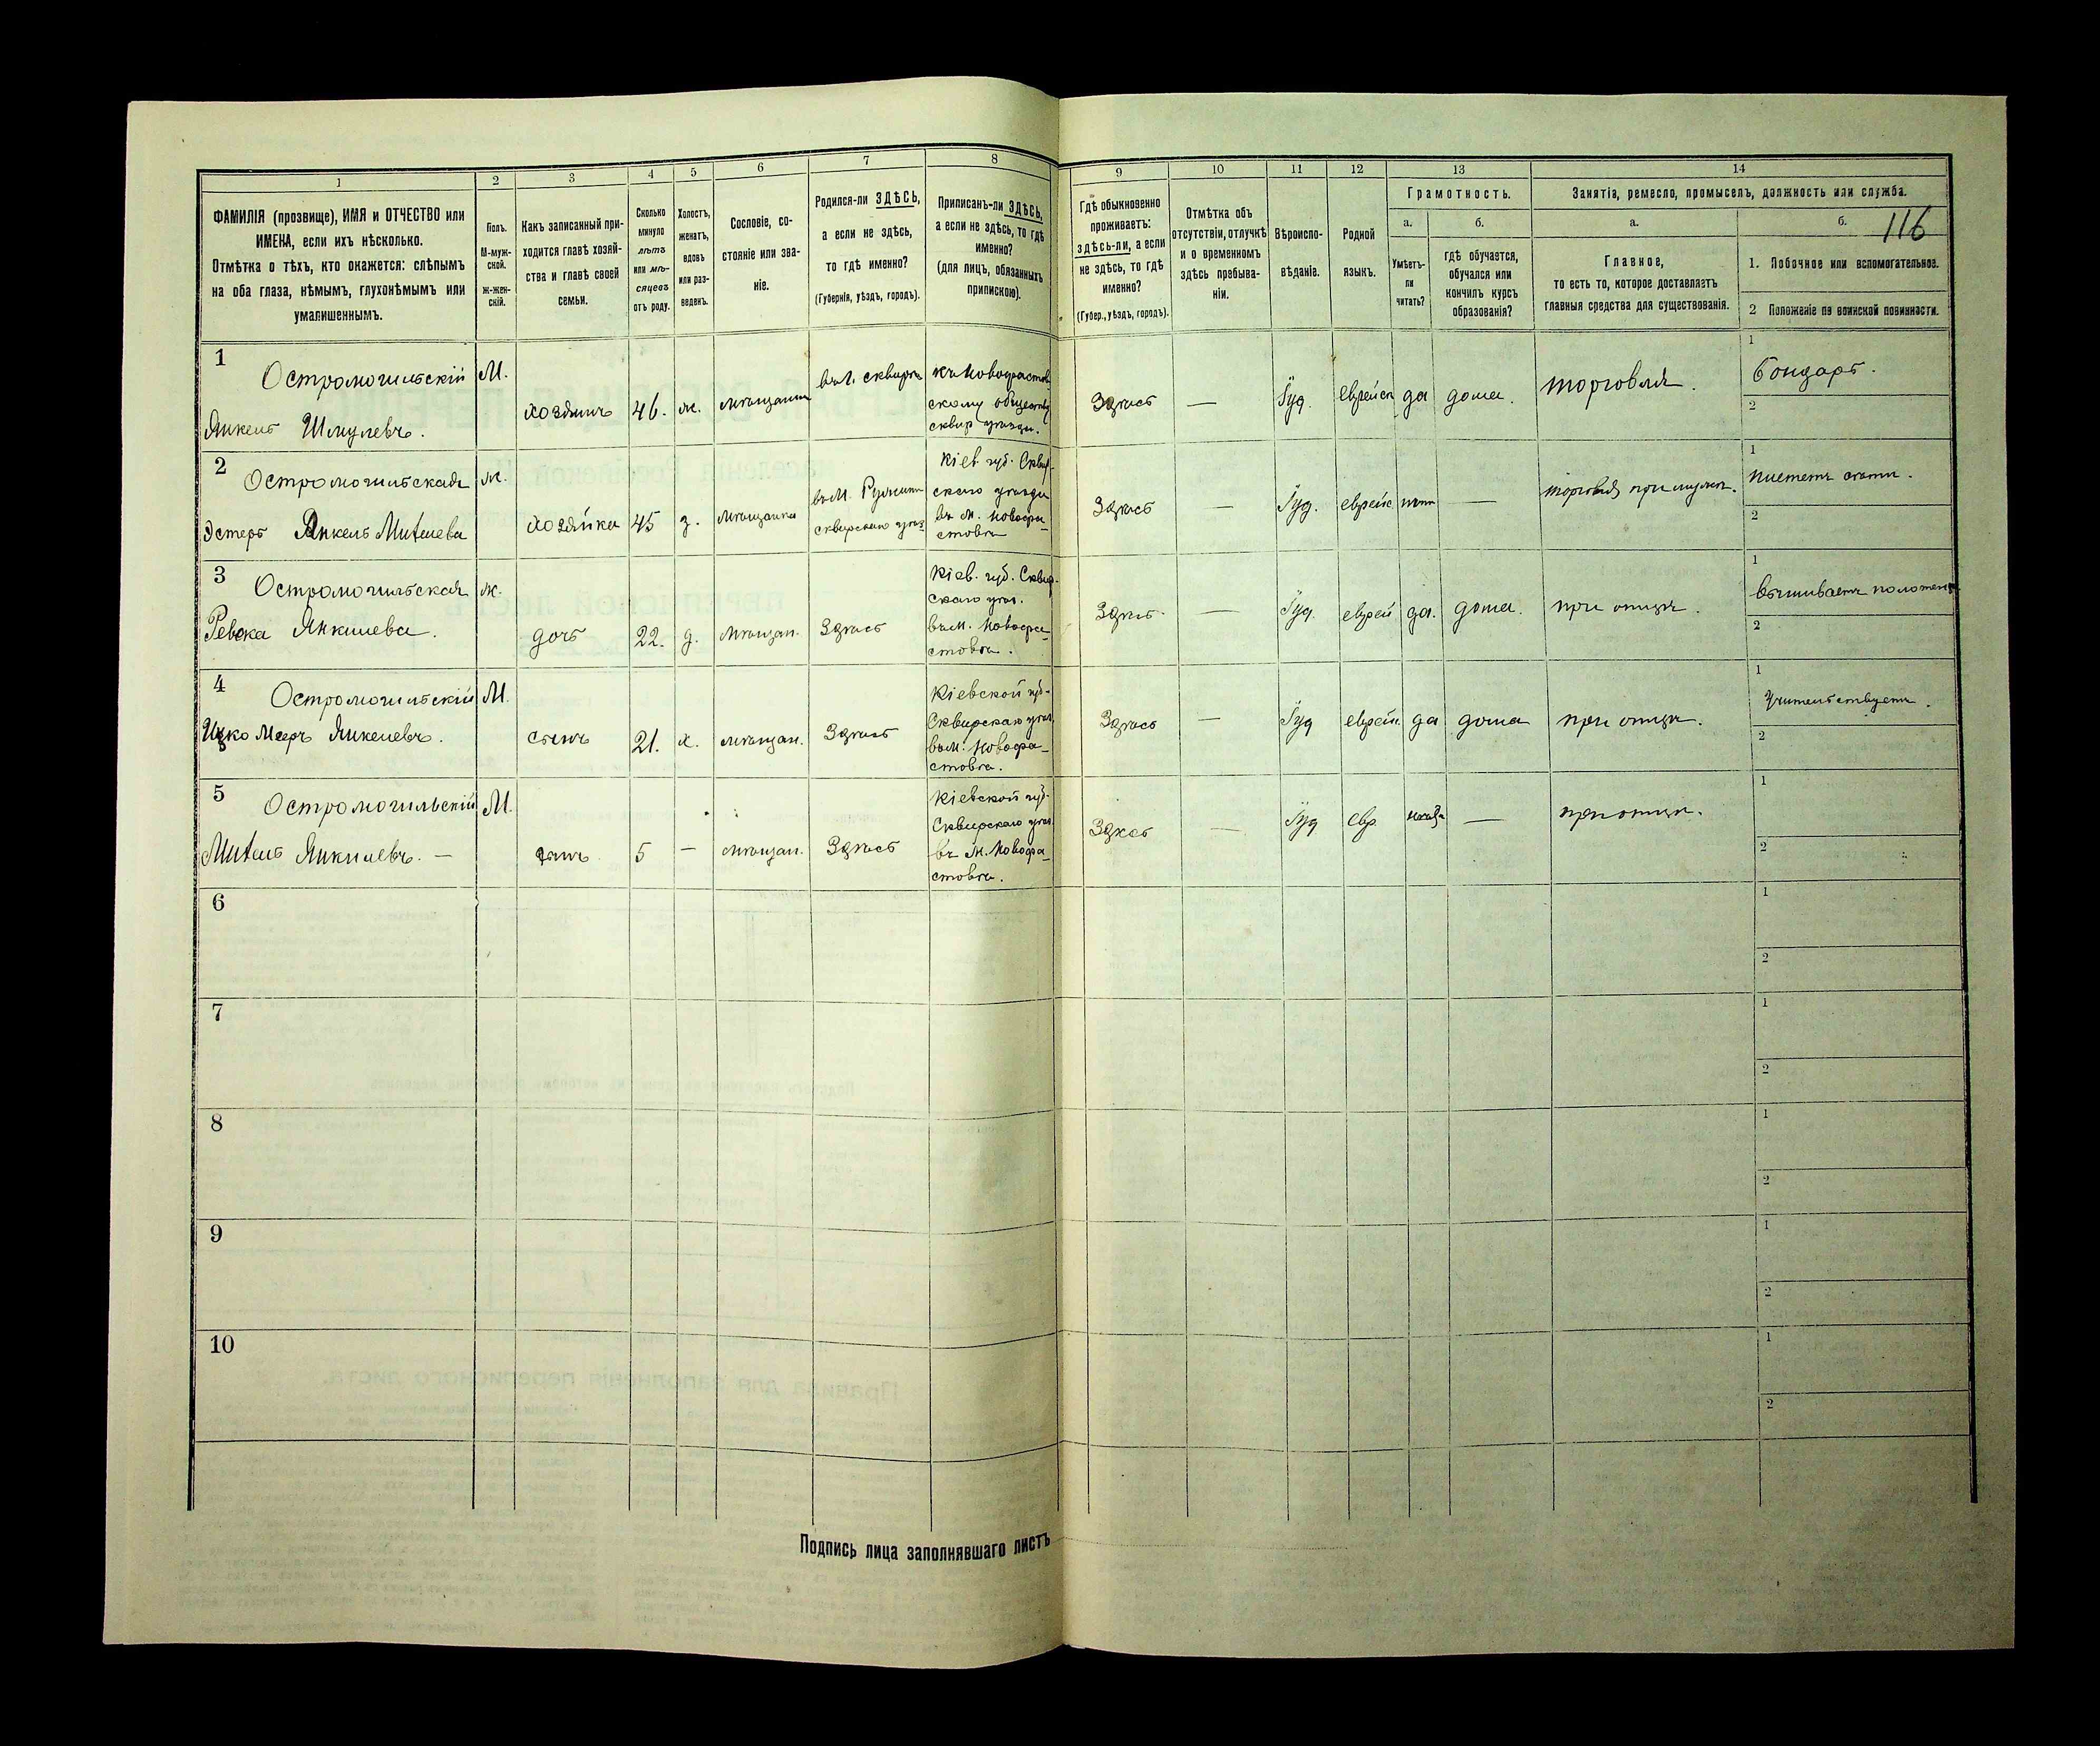 1 2 3 4 5 6 7 8 9 10 11 12 13 14
ФАМИЛІЯ (прозвище), ИМЯ и ОТЧЕСТВО или
ИМЕНА, если ихъ нѣсколько.
Отмѣтка о тѣхъ, кто окажется: слѣпымъ
на оба глаза, нѣмымъ, глухонѣмымъ или
умалишеннымъ.
Полъ.
М-муж-
ской.
Ж-жен-
скій.
Какъ записанный при-
ходится главѣ хозяй-
ства и главѣ своей
семьи.
Сколько
минуло
лѣтъ
или мѣ-
сяцевъ
отъ роду.
Холостъ,
женатъ,
вдовъ
или раз-
веденъ.
Сословіе, со-
стояніе или зва-
ніе.
Родился-ли ЗДѢСЬ,
а если не здѣсь,
то гдѣ именно?
(Губернія, уѣздъ, городъ).
Приписанъ-ли ЗДѢСЬ,
а если не здѣсь, то гдѣ
именно?
(для лицъ, обязанныхъ
припискою).
Гдѣ обыкновенно
проживаетъ:
здѣсь-ли, а если
не здѣсь, то гдѣ
именно?
(Губер., уѣздъ, городъ).
Отмѣтка объ
отсутствіи, отлучкѣ
и о временномъ
здѣсь пребыва-
ніи.
Вѣроиспо-
вѣданіе.
Родной
языкъ.
Грамотность.
а.
Умѣетъ-
ли
читать?
б.
гдѣ обучается,
обучался или
кончилъ курсъ
образованія?
Занятія, ремесло, промыселъ, должность или служба.
а.
Главное,
то есть то, которое доставляетъ
главныя средства для существованія.
б.
116
1. Побочное или вспомогательное.
2 Положеніе по воинской повинности.
1
Остромогильскій
Янкель Шмулевъ.
М.
хозяинъ
46.
ж.
мѣщанинъ
въ г. сквирѣ
къ Новофастов
скому обществу
сквир уѣзда.
Здѣсь
—
Іуд.
еврейск
да
дома.
торговля.
1
Бондарь.
2
2
Остромогильская
Эстеръ Янкель Митлева
ж.
хозяйка
45
з.
мѣщанка
въ М. Ружинѣ
сквирскаго уѣз
Кіев. губ. Сквир-
скаго уѣзда
въ м. Новофа-
стовкѣ
Здѣсь
—
Іуд.
еврейс
нѣтъ
—
торговля при мужѣ.
1
2
3
Остромогильская
Ревека Янкилева.
ж.
дочь
22.
д.
мѣщан.
Здѣсь
Кіев. губ. Сквир-
скаго уѣз.
въ м. Новофа-
стовкѣ.
Здѣсь
—
Іуд.
еврей
да.
дома.
при отцѣ.
1
2
4
Остромогильскій
Ицко Мееръ Янкелевъ.
М.
сынъ
21.
х.
мѣщан.
Здѣсь
Кіевской губ-
Сквирскаго уѣз.
въ м. Новофа-
стовкѣ.
Здѣсь
—
Іуд
еврейс.
да
дома
при отцѣ.
1
Учительствуетъ.
2
5
Остромогильскій
Митель Янкилевъ. —
М.
сынъ
5
—
мѣщан.
Здѣсь
Кіевской губ-
Сквирскаго уѣз.
въ м. Новофа-
стовкѣ.
Здѣсь
—
Іуд
евр
—
при отцѣ.
1
2
6
1
2
7
1
2
8
1
2
9
1
2
10
1
2
Подпись лица заполнявшаго листъ